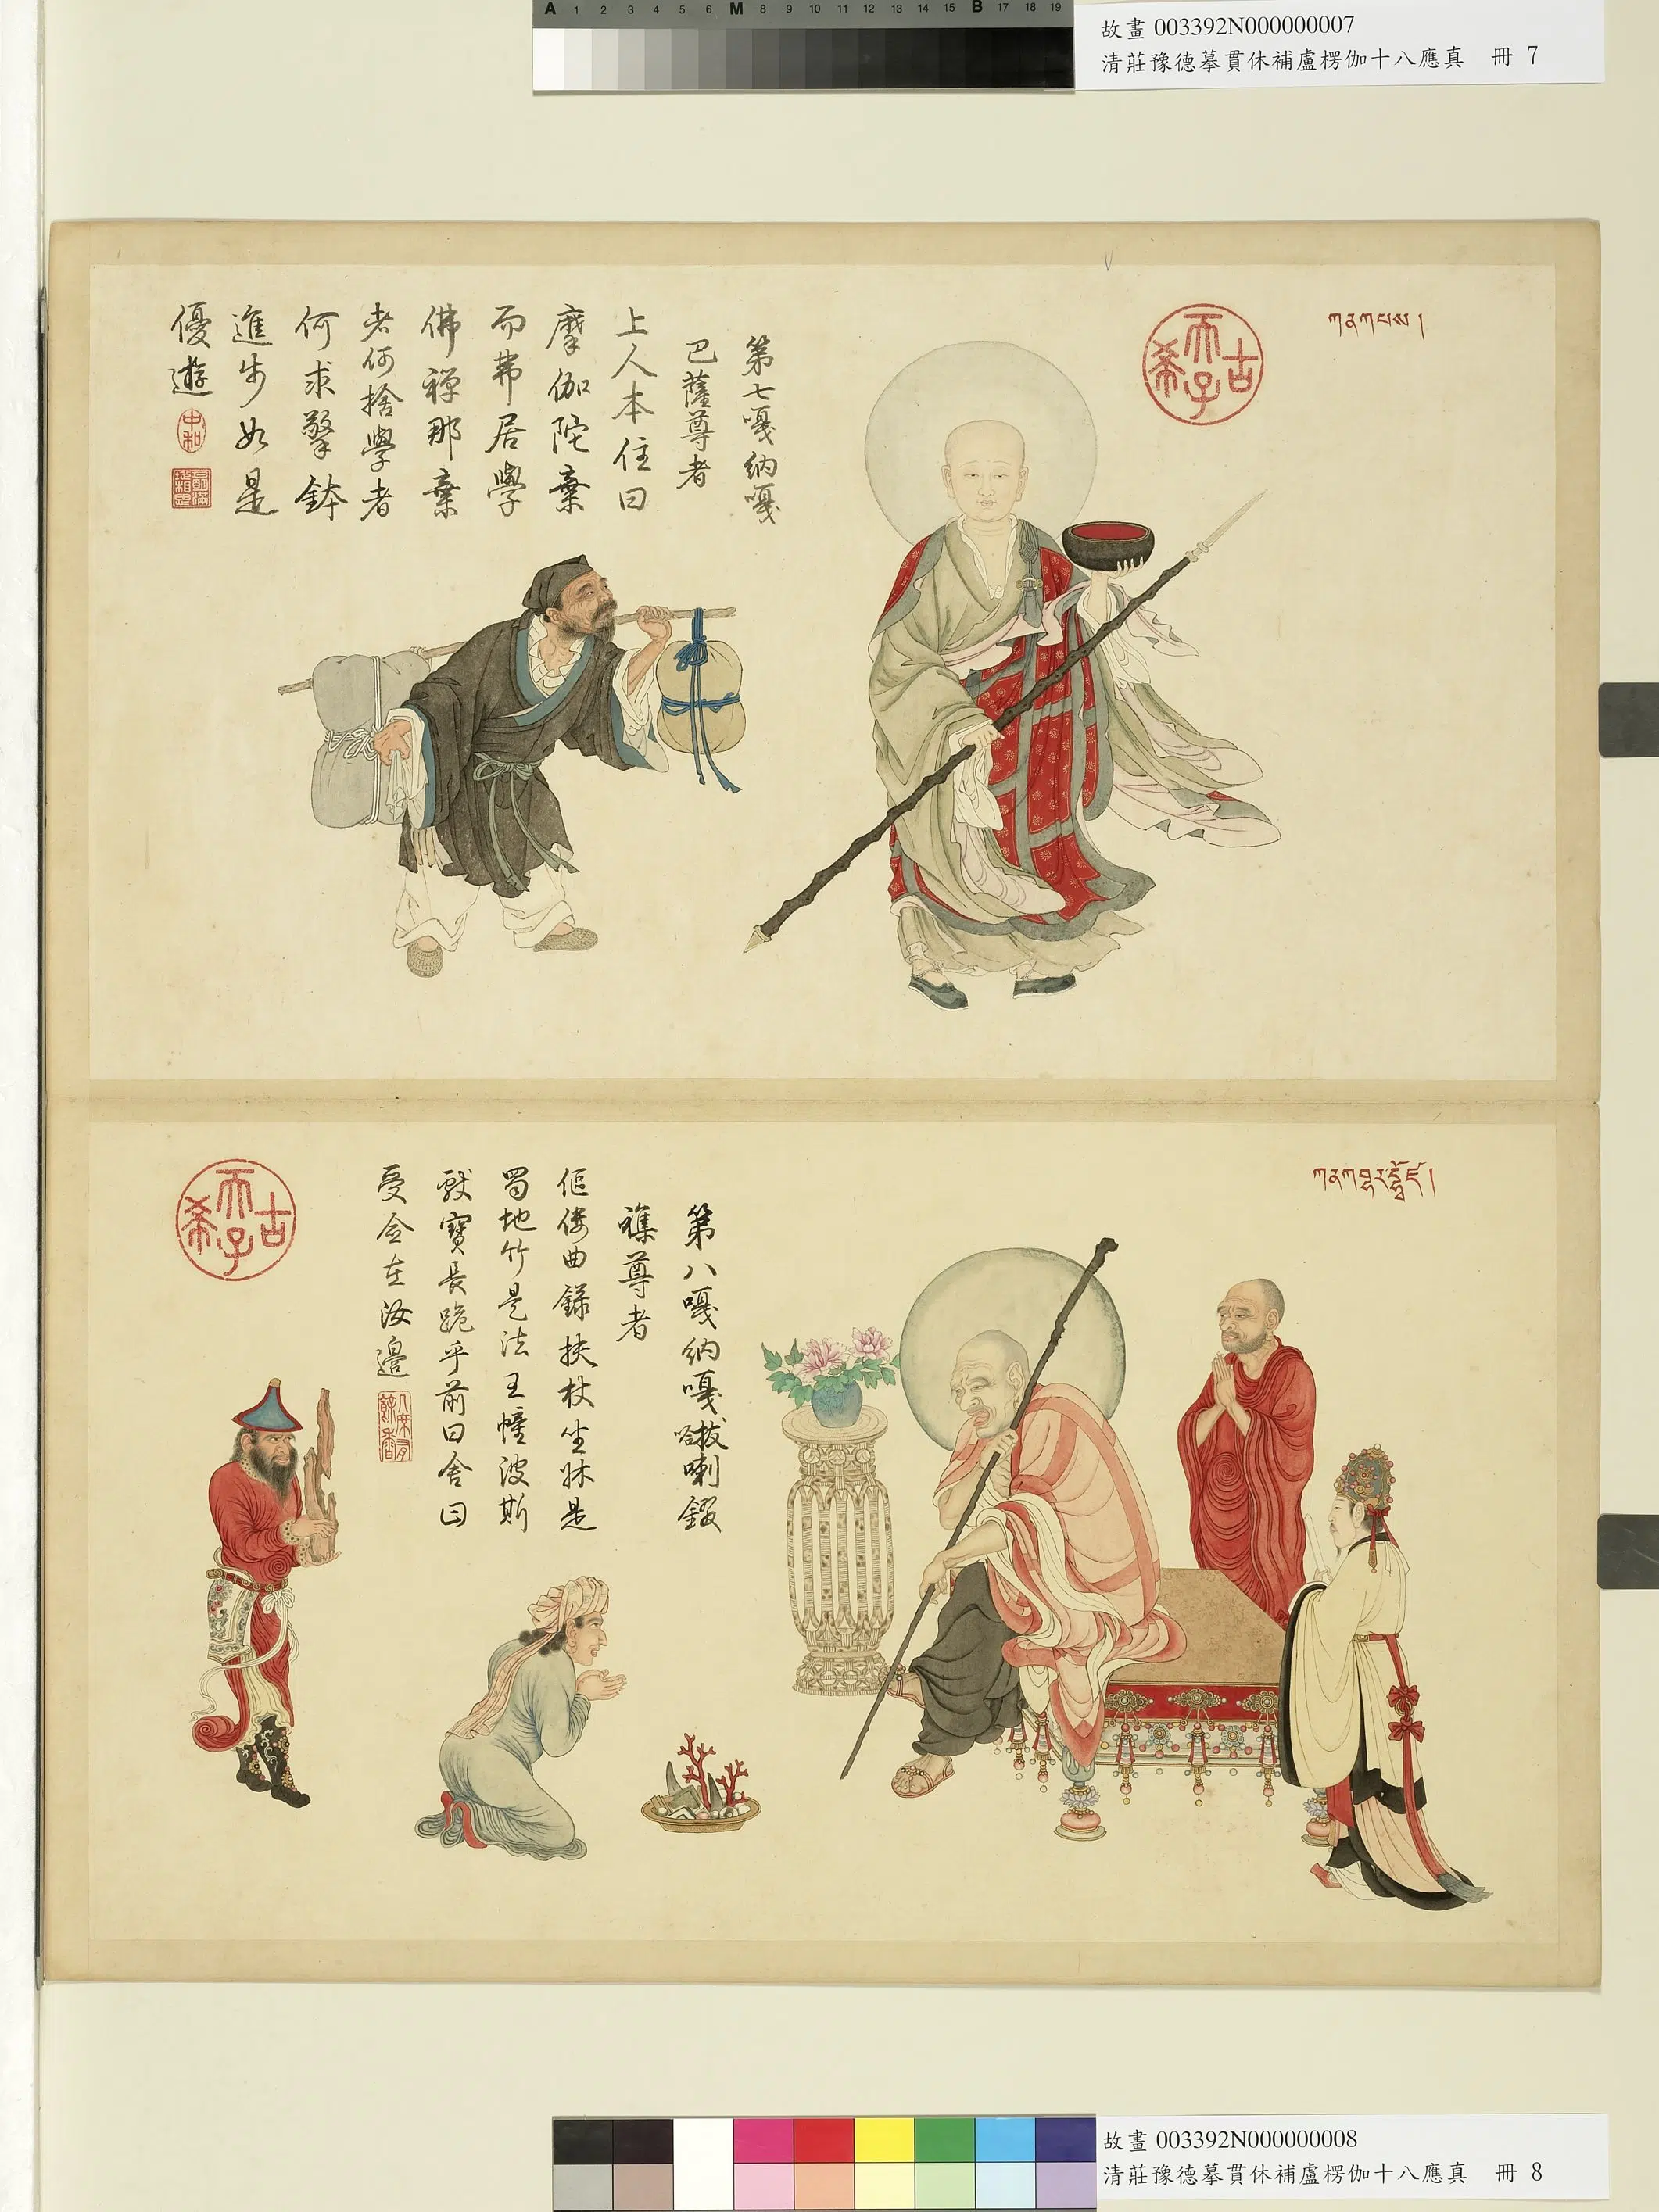 A 1 2 3 4 5 6 M 8 9 10 11 12 13 14 15 B 17 18 19
故畫 003392N000000007
清莊豫德摹貫休補盧楞伽十八應真 冊 7
ཀནཀཔས །
古希天子
第七嘎納嘎
巴薩尊者
上人本住曰
摩伽陀棄
而弗居學
佛禪那棄
者何捨學者
何求擎鉢
進步如是
優遊
中和
ཀནཀབྷར་དྷྭོ་ཛ །
第八嘎納嘎哈拔喇鍛
襍尊者
傴僂曲錄扶杖坐牀是
蜀地竹是法王幢波斯
獻寶長跪乎前曰舍曰
受仝在汝邊
古希天子
故畫 003392N000000008
清莊豫德摹貫休補盧楞伽十八應真 冊 8